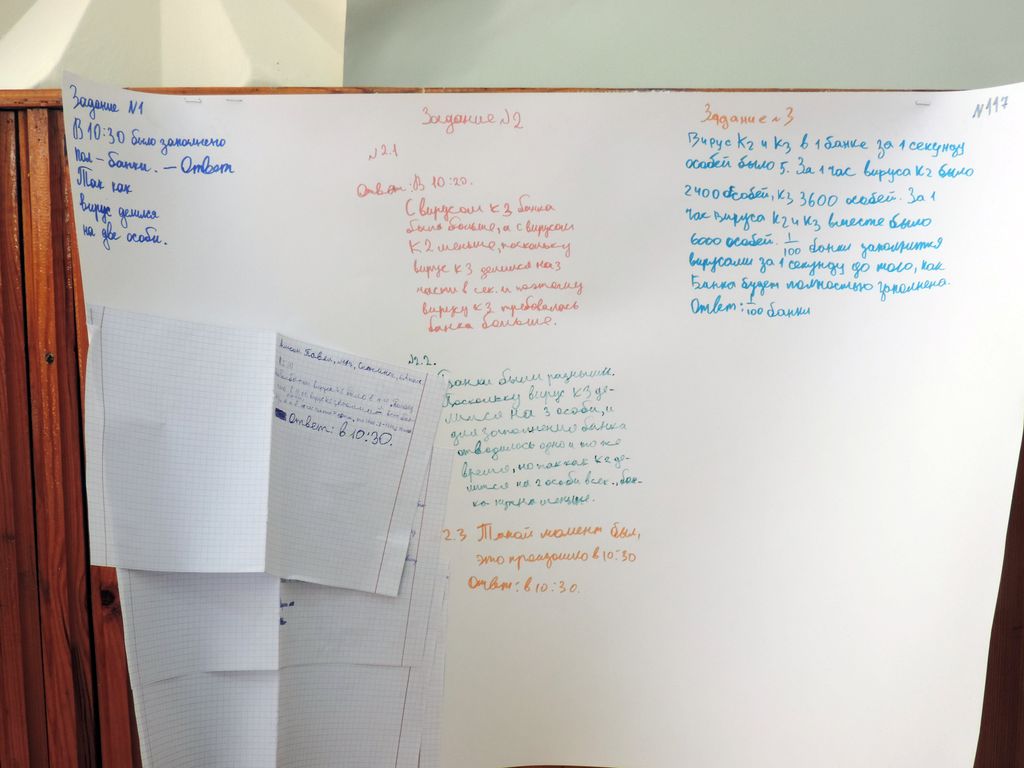 Задание N1
В 10:30 было заполнено
пол-банки. — Ответ
Так как
вирус делился
на две особи.
Задание N2
N2.1
Ответ: В 10:20.
С вирусом К3 банка
была больше, а с вирусом
К2 меньше, поскольку
вирус К3 делился на 3
части в сек. и поэтому
вирусу К3 требовалась
банка больше.
N2.2.
Банки были разными.
Поскольку вирус К3 де-
лился на 3 особи, и
для заполнения банка
отводилось одно и то же
время, но так как К2 де-
лится на 2 особи в сек., бан-
ка нужна меньше.
2.3 Такой момент был,
это произошло в 10:30
Ответ: в 10:30.
Задание N3
N117
Вирус К2 и К3 в 1 банке за 1 секунду
особей было 5. За 1 час вируса К2 было
2400 особей, К3 3600 особей. За 1
час вируса К2 и К3 вместе было
6000 особей. 1/100 банки заполнится
вирусами за 1 секунду до того, как
Банка будет полностью заполнена.
Ответ: 1/100 банки
Ответ: в 10:30.